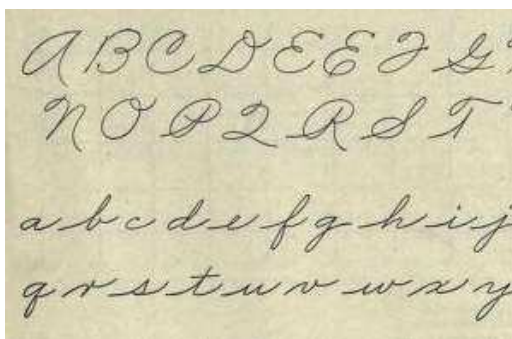 A B C D E E F G
N O P Q R S T
a b c d e f g h i j
q r s t u v w x y